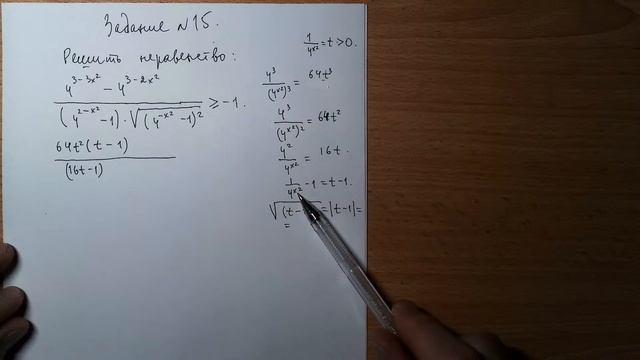 Задание №15.
Решить неравенство:
4^{3-3x^2} - 4^{3-2x^2}
(4^{2-x^2} -1)·√(4^{-x^2} -1)^2 ≥ -1.
64t^2(t-1)
(16t-1)
1/4^{x^2} = t > 0.
4^3/(4^{x^2})^3 = 64t^3
4^3/(4^{x^2})^2 = 64t^2
4^2/4^{x^2} = 16t.
1/4^{x^2} -1 = t-1.
√(t- = |t-1| =
=